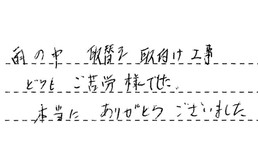 雨の中 取替え 取付け工事
どうも ご苦労様でした。
本当に ありがとう ございました